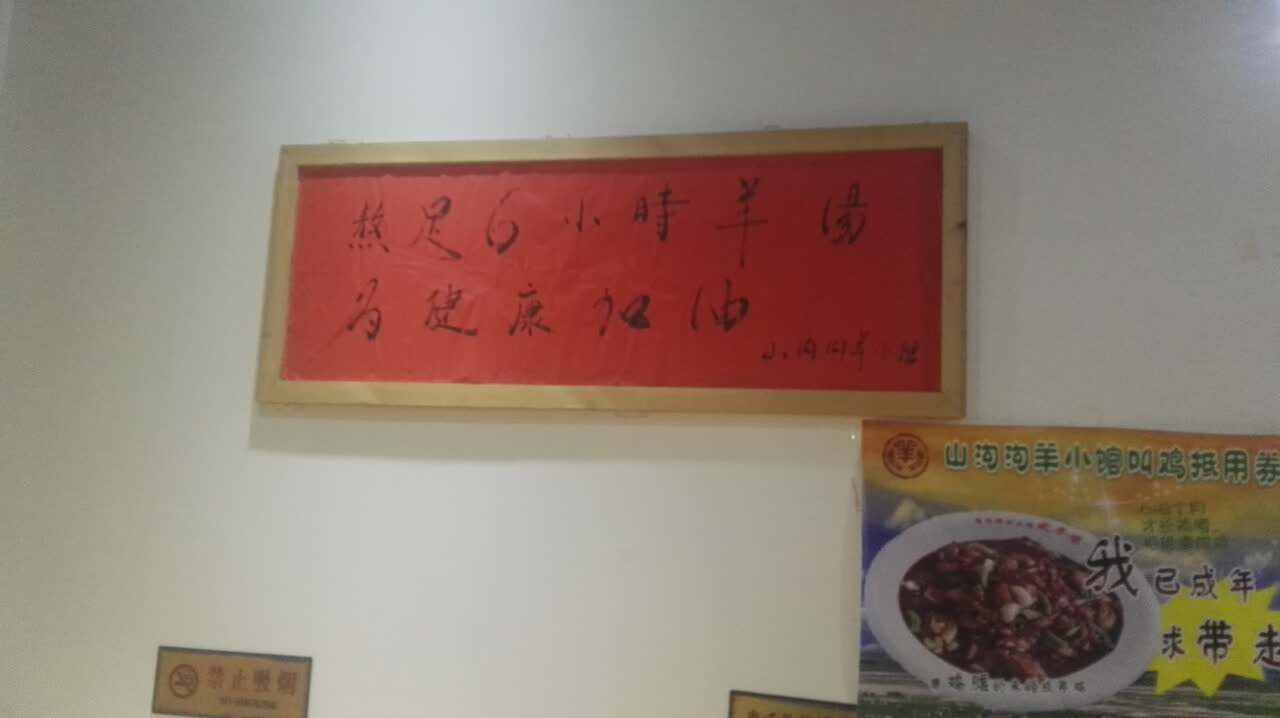 熬足6小時羊湯
为健康加油
山沟沟羊小馆
山沟沟羊小馆叫鸡抵用券
我已成年
求带走
禁止吸烟